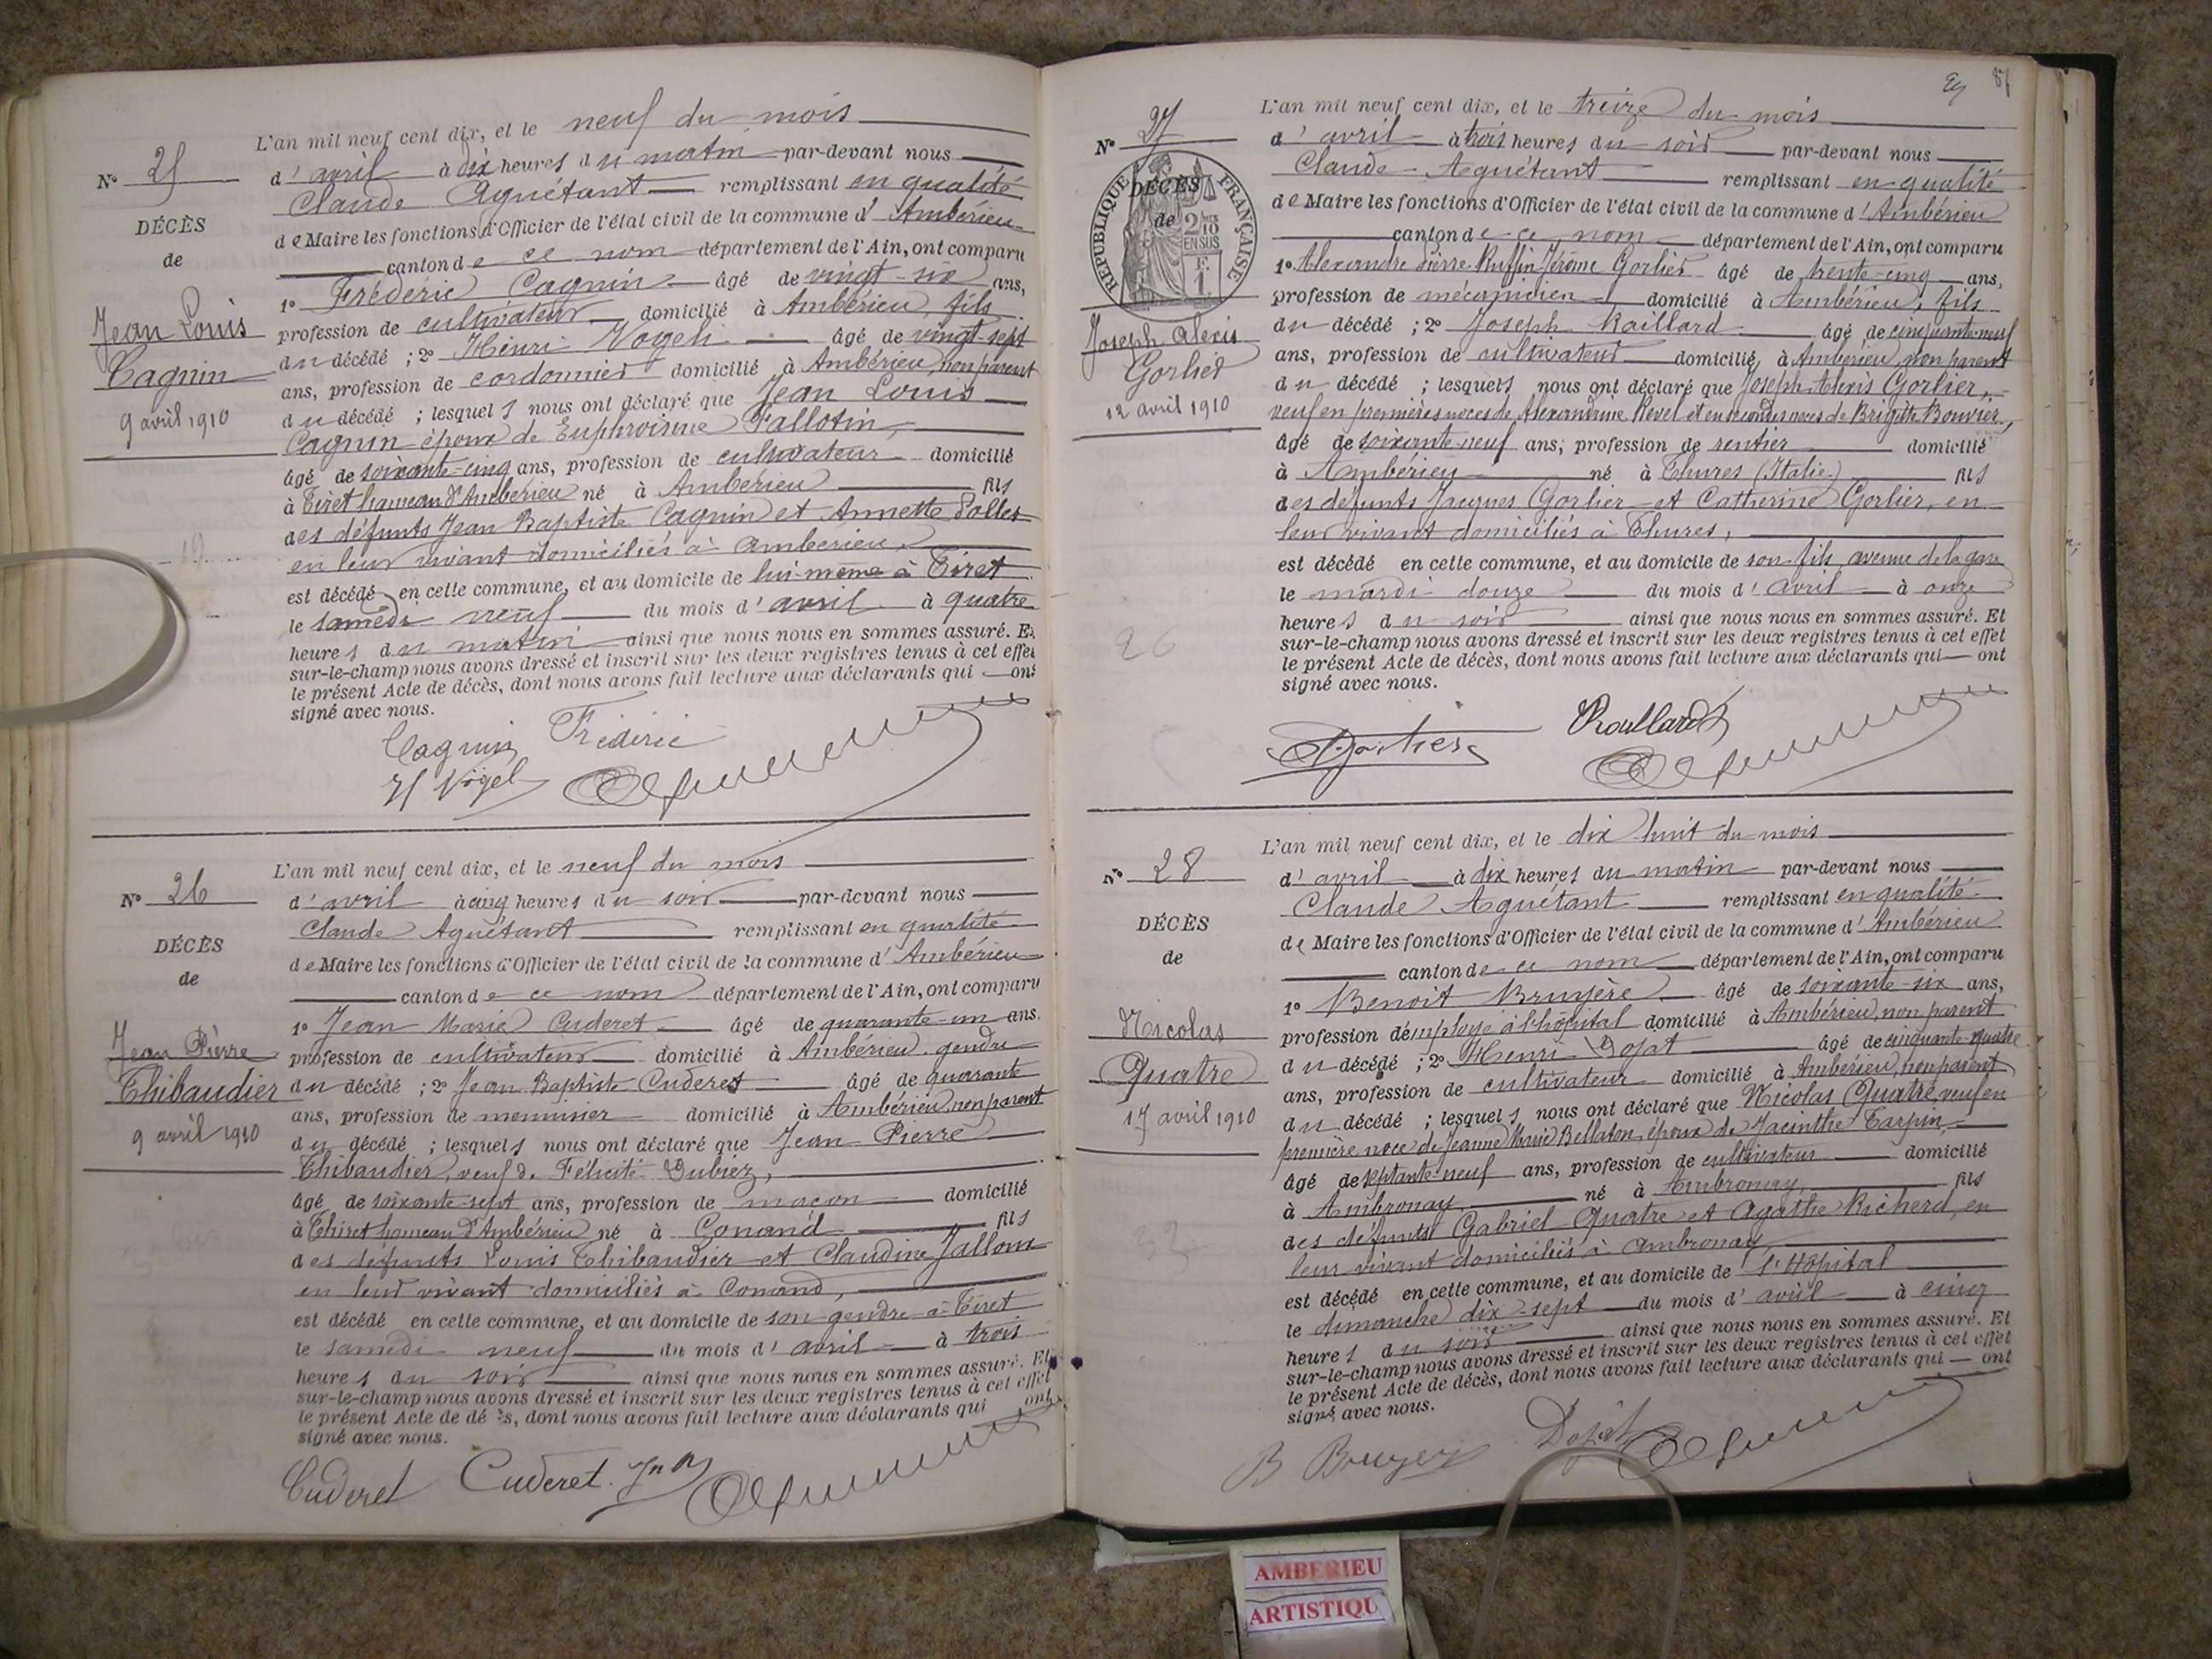 L'an mil neuf cent dix, et le neuf du mois
d'avril à dix heures du matin par-devant nous
Claude Aguétant remplissant en qualité
de Maire les fonctions d'Officier de l'état civil de la commune d'Ambérieu
canton de ce nom département de l'Ain, ont comparu
1o Fréderic Cagnin âgé de vingt-six ans,
profession de cultivateur domicilié à Ambérieu, fils
du décédé ; 2o Henri Vogeli âgé de vingt-sept
ans, profession de cordonnier domicilié à Ambérieu, non parent
du décédé ; lesquels nous ont déclaré que Jean Louis
Cagnin époux de Euphroisine Fallotin,
âgé de soixante-cinq ans, profession de cultivateur domicilié
à Tiret hameau d'Ambérieu né à Ambérieu fils
des défunts Jean Baptiste Cagnin et Annette
en leur vivant domiciliés à Ambérieu,
est décédé en cette commune, et au domicile de lui-même à Tiret
le samedi neuf du mois d'avril à quatre
heures du matin ainsi que nous nous en sommes assuré. Et
sur-le-champ nous avons dressé et inscrit sur les deux registres tenus à cet effet
le présent Acte de décès, dont nous avons fait lecture aux déclarants qui ont
signé avec nous.
Cagnin Fréderic
No 25
DÉCÈS
de
Jean Louis
Cagnin
9 avril 1910
L'an mil neuf cent dix, et le neuf du mois
d'avril à cinq heures du soir par-devant nous
Claude Aguétant remplissant en qualité
de Maire les fonctions d'Officier de l'état civil de la commune d'Ambérieu
canton de ce nom département de l'Ain, ont comparu
1o Jean Marie Cuderet âgé de quarante-un ans.
profession de cultivateur domicilié à Ambérieu, gendre
du décédé ; 2o Jean Baptiste Cuderet âgé de quarante
ans, profession de menuisier domicilié à Ambérieu, non parent
du décédé ; lesquels nous ont déclaré que Jean Pierre
Thibaudier, veuf de Félicité Dubiez,
âgé de soixante-sept ans, profession de maçon domicilié
à Thiret hameau d'Ambérieu né à Conand fils
des défunts Louis Thibaudier et Claudine Jallom
en leur vivant domiciliés à Conand,
est décédé en cette commune, et au domicile de son gendre à Tiret
le samedi neuf du mois d'avril à trois
heures du soir ainsi que nous nous en sommes assuré. Et
sur-le-champ nous avons dressé et inscrit sur les deux registres tenus à cet effet
le présent Acte de décès, dont nous avons fait lecture aux déclarants qui ont
signé avec nous.
Cuderet Cuderet
No 26
DÉCÈS
de
Jean Pierre
Thibaudier
9 avril 1910
L'an mil neuf cent dix, et le treize du mois
d'avril à trois heures du soir par-devant nous
Claude Aguétant remplissant en qualité
de Maire les fonctions d'Officier de l'état civil de la commune d'Ambérieu
canton de ce nom département de l'Ain, ont comparu
1o Alexandre Pierre Ruffin Jérôme Gorlier âgé de trente-cinq ans,
profession de mécanicien domicilié à Ambérieu, fils
du décédé ; 2o Joseph Raillard âgé de cinquante-neuf
ans, profession de cultivateur domicilié à Ambérieu non parent
du décédé ; lesquels nous ont déclaré que Joseph Alexis Gorlier,
veuf en premières noces de Alexandrine Revel et en secondes noces de Brigitte Bouvier,
âgé de soixante-neuf ans, profession de rentier domicilié
à Ambérieu né à Thures (Italie) fils
des défunts Jacques Gorlier et Catherine Gorlier, en
leur vivant domiciliés à Thures,
est décédé en cette commune, et au domicile de son fils, avenue de la gare
le mardi douze du mois d'avril à onze
heures du soir ainsi que nous nous en sommes assuré. Et
sur-le-champ nous avons dressé et inscrit sur les deux registres tenus à cet effet
le présent Acte de décès, dont nous avons fait lecture aux déclarants qui ont
signé avec nous.
No 27
RÉPUBLIQUE FRANÇAISE
2/10 EN SUS
DÉCÈS
de
Joseph Alexis
Gorlier
12 avril 1910
26
L'an mil neuf cent dix, et le dix huit du mois
d'avril à dix heures du matin par-devant nous
Claude Aguétant remplissant en qualité
de Maire les fonctions d'Officier de l'état civil de la commune d'Ambérieu
canton de ce nom département de l'Ain, ont comparu
1o Benoit Bruyère âgé de soixante-six ans,
profession d'employé à l'hôpital domicilié à Ambérieu, non parent
du décédé ; 2o Henri Dojat âgé de cinquante-quatre
ans, profession de cultivateur domicilié à Ambérieu, non parent
du décédé ; lesquels nous ont déclaré que Nicolas Quatre, veuf en
première noce de Jeanne Marie Bellaton, époux de Jacinthe Tarpin,
âgé de septante-neuf ans, profession de cultivateur domicilié
à Ambronay, né à Ambronay, fils
des défunts Gabriel Quatre et Agathe Richerd, en
leur vivant domiciliés à Ambronay
est décédé en cette commune, et au domicile de l'Hôpital
le dimanche dix-sept du mois d'avril à cinq
heures du soir ainsi que nous nous en sommes assuré. Et
sur-le-champ nous avons dressé et inscrit sur les deux registres tenus à cet effet
le présent Acte de décès, dont nous avons fait lecture aux déclarants qui ont
signé avec nous.
B Bruyer Dojat
No 28
DÉCÈS
de
Nicolas
Quatre
17 avril 1910
AMBERIEU
ARTISTIQU